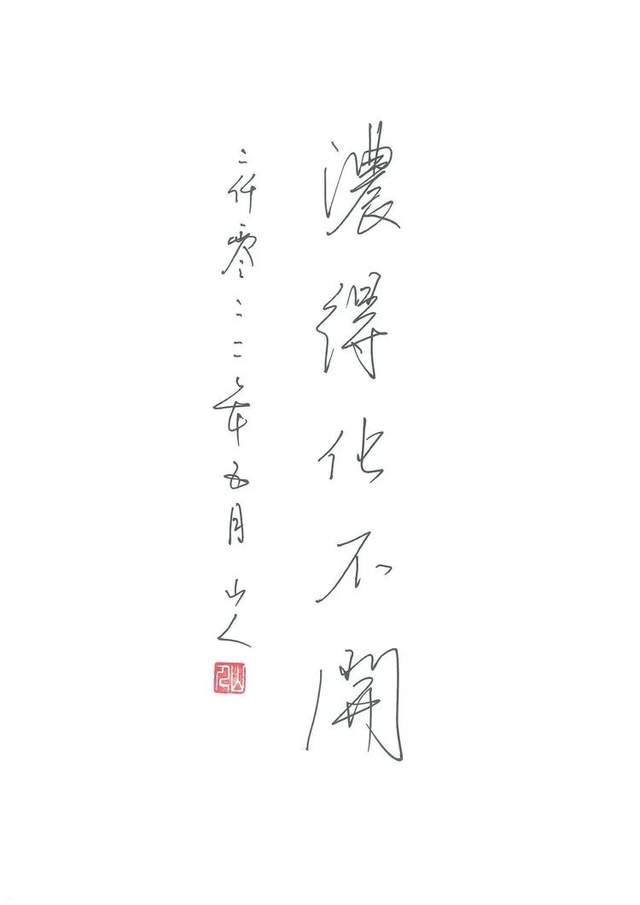 濃得化不開
二仟零二二年五月 山人
山人